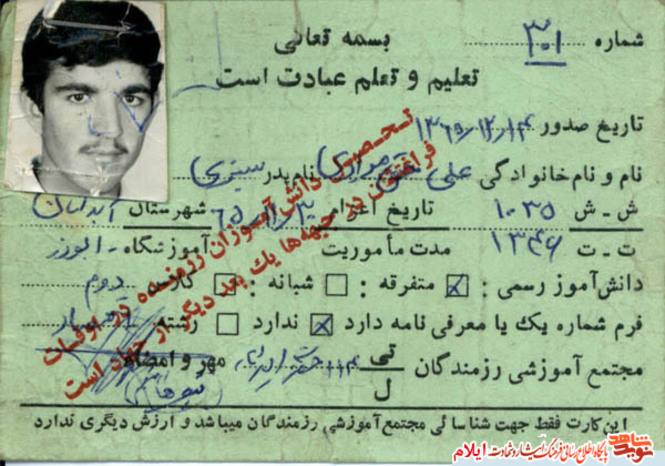 بسمه تعالی
شماره ۳۰۱
تعلیم و تعلم عبادت است
تاریخ صدور ۱۳۶۵/۱۲/۱۴
نام و نام خانوادگی علی مرادی نام پدر سبزی
ش - ش ۱۰۳۵ تاریخ اعزام شهرستان آبدانان
ت - ت ۱۳۴۶ مدت مأموریت آموزشگاه - ابوذر
دانش آموز رسمی : متفرقه : شبانه : کلاس دوم
فرم شماره یک یا معرفی نامه دارد ندارد رشته
مجتمع آموزشی رزمندگان تی ل ۱۱۴ مهر و امضاء
این کارت فقط جهت شناسائی مجتمع آموزشی رزمندگان میباشد و ارزش دیگری ندارد
تحصیل دانش آموزان رزمنده در اوقات
فراغتشان در جبهه ها یک بعد دیگر از جهاد است
نوید شاهد
پایگاه اطلاع رسانی فرهنگ ایثار و شهادت ایلام